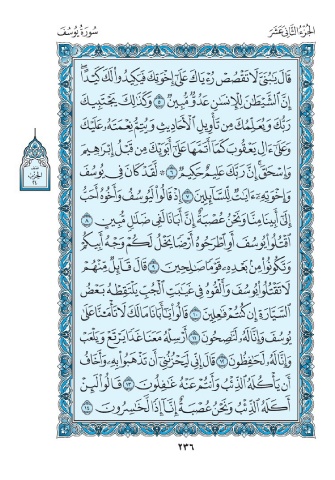 الجزء الثاني عشر
سورة يوسف
قَالَ يَٰبُنَيَّ لَا تَقْصُصْ رُءْيَاكَ عَلَىٰٓ إِخْوَتِكَ فَيَكِيدُوا۟ لَكَ كَيْدًا
إِنَّ ٱلشَّيْطَٰنَ لِلْإِنسَٰنِ عَدُوٌّ مُّبِينٌ ٥ وَكَذَٰلِكَ يَجْتَبِيكَ
رَبُّكَ وَيُعَلِّمُكَ مِن تَأْوِيلِ ٱلْأَحَادِيثِ وَيُتِمُّ نِعْمَتَهُۥ عَلَيْكَ
وَعَلَىٰٓ ءَالِ يَعْقُوبَ كَمَآ أَتَمَّهَا عَلَىٰٓ أَبَوَيْكَ مِن قَبْلُ إِبْرَٰهِيمَ
وَإِسْحَٰقَ إِنَّ رَبَّكَ عَلِيمٌ حَكِيمٌ ٦ ۞ لَّقَدْ كَانَ فِى يُوسُفَ
وَإِخْوَتِهِۦٓ ءَايَٰتٌ لِّلسَّآئِلِينَ ٧ إِذْ قَالُوا۟ لَيُوسُفُ وَأَخُوهُ أَحَبُّ
إِلَىٰٓ أَبِينَا مِنَّا وَنَحْنُ عُصْبَةٌ إِنَّ أَبَانَا لَفِى ضَلَٰلٍ مُّبِينٍ ٨
ٱقْتُلُوا۟ يُوسُفَ أَوِ ٱطْرَحُوهُ أَرْضًا يَخْلُ لَكُمْ وَجْهُ أَبِيكُمْ
وَتَكُونُوا۟ مِنۢ بَعْدِهِۦ قَوْمًا صَٰلِحِينَ ٩ قَالَ قَآئِلٌ مِّنْهُمْ
لَا تَقْتُلُوا۟ يُوسُفَ وَأَلْقُوهُ فِى غَيَٰبَتِ ٱلْجُبِّ يَلْتَقِطْهُ بَعْضُ
ٱلسَّيَّارَةِ إِن كُنتُمْ فَٰعِلِينَ ١٠ قَالُوا۟ يَٰٓأَبَانَا مَا لَكَ لَا تَأْمَ۫نَّا عَلَىٰ
يُوسُفَ وَإِنَّا لَهُۥ لَنَٰصِحُونَ ١١ أَرْسِلْهُ مَعَنَا غَدًا يَرْتَعْ وَيَلْعَبْ
وَإِنَّا لَهُۥ لَحَٰفِظُونَ ١٢ قَالَ إِنِّى لَيَحْزُنُنِىٓ أَن تَذْهَبُوا۟ بِهِۦ وَأَخَافُ
أَن يَأْكُلَهُ ٱلذِّئْبُ وَأَنتُمْ عَنْهُ غَٰفِلُونَ ١٣ قَالُوا۟ لَئِنْ
أَكَلَهُ ٱلذِّئْبُ وَنَحْنُ عُصْبَةٌ إِنَّآ إِذًا لَّخَٰسِرُونَ ١٤
الحزب
٢٤
٢٣٦